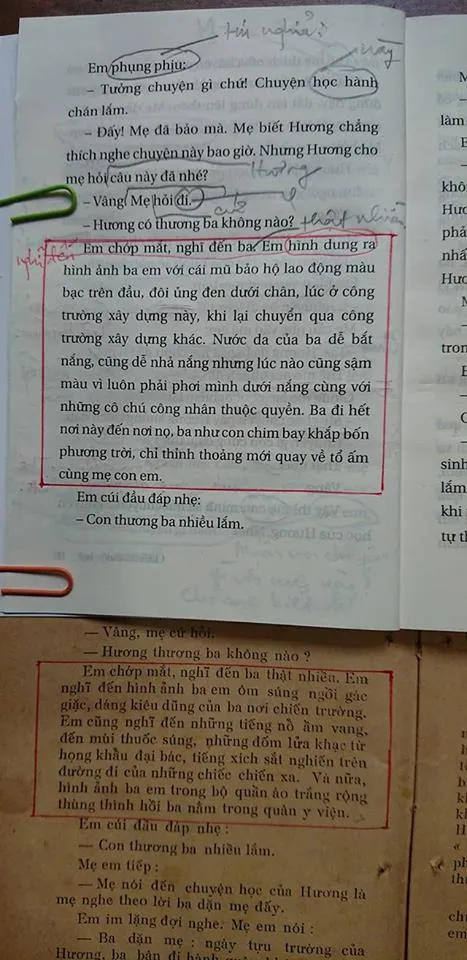 từ nghĩa?
này
Em phụng phịu:
– Tưởng chuyện gì chứ! Chuyện học hành
chán lắm.
– Đấy! Mẹ đã bảo mà. Mẹ biết Hương chẳng
thích nghe chuyện này bao giờ. Nhưng Hương cho
mẹ hỏi câu này đã nhé?
Hương
– Vâng! Mẹ hỏi đi.
cứ
– Hương có thương ba không nào?
thật nhiều
nghĩ đến
Em chớp mắt, nghĩ đến ba. Em hình dung ra
hình ảnh ba em với cái mũ bảo hộ lao động màu
bạc trên đầu, đôi ủng đen dưới chân, lúc ở công
trường xây dựng này, khi lại chuyển qua công
trường xây dựng khác. Nước da của ba dễ bắt
nắng, cũng dễ nhả nắng nhưng lúc nào cũng sậm
màu vì luôn phải phơi mình dưới nắng cùng với
những cô chú công nhân thuộc quyền. Ba đi hết
nơi này đến nơi nọ, ba như con chim bay khắp bốn
phương trời, chỉ thỉnh thoảng mới quay về tổ ấm
cùng mẹ con em.
Em cúi đầu đáp nhẹ:
– Con thương ba nhiều lắm.
— Vâng, mẹ cứ hỏi.
— Hương thương ba không nào ?
Em chớp mắt, nghĩ đến ba thật nhiều. Em
nghĩ đến hình ảnh ba em ôm súng ngồi gác
giặc, dáng kiêu dũng của ba nơi chiến trường.
Em cũng nghĩ đến những tiếng nổ ầm vang,
đến mùi thuốc súng, những đốm lửa khạc từ
họng khẩu đại bác, tiếng xích sắt nghiến trên
đường đi của những chiếc chiến xa. Và nữa,
hình ảnh ba em trong bộ quần áo trắng rộng
thùng thình hồi ba nằm trong quân y viện.
Em cúi đầu đáp nhẹ :
— Con thương ba nhiều lắm.
Mẹ em tiếp :
— Mẹ nói đến chuyện học của Hương là
mẹ nghe theo lời ba dặn mẹ đấy.
Em im lặng đợi nghe. Mẹ em nói :
— Ba dặn mẹ : ngày tựu trường của
Hương, ba bận đi hành